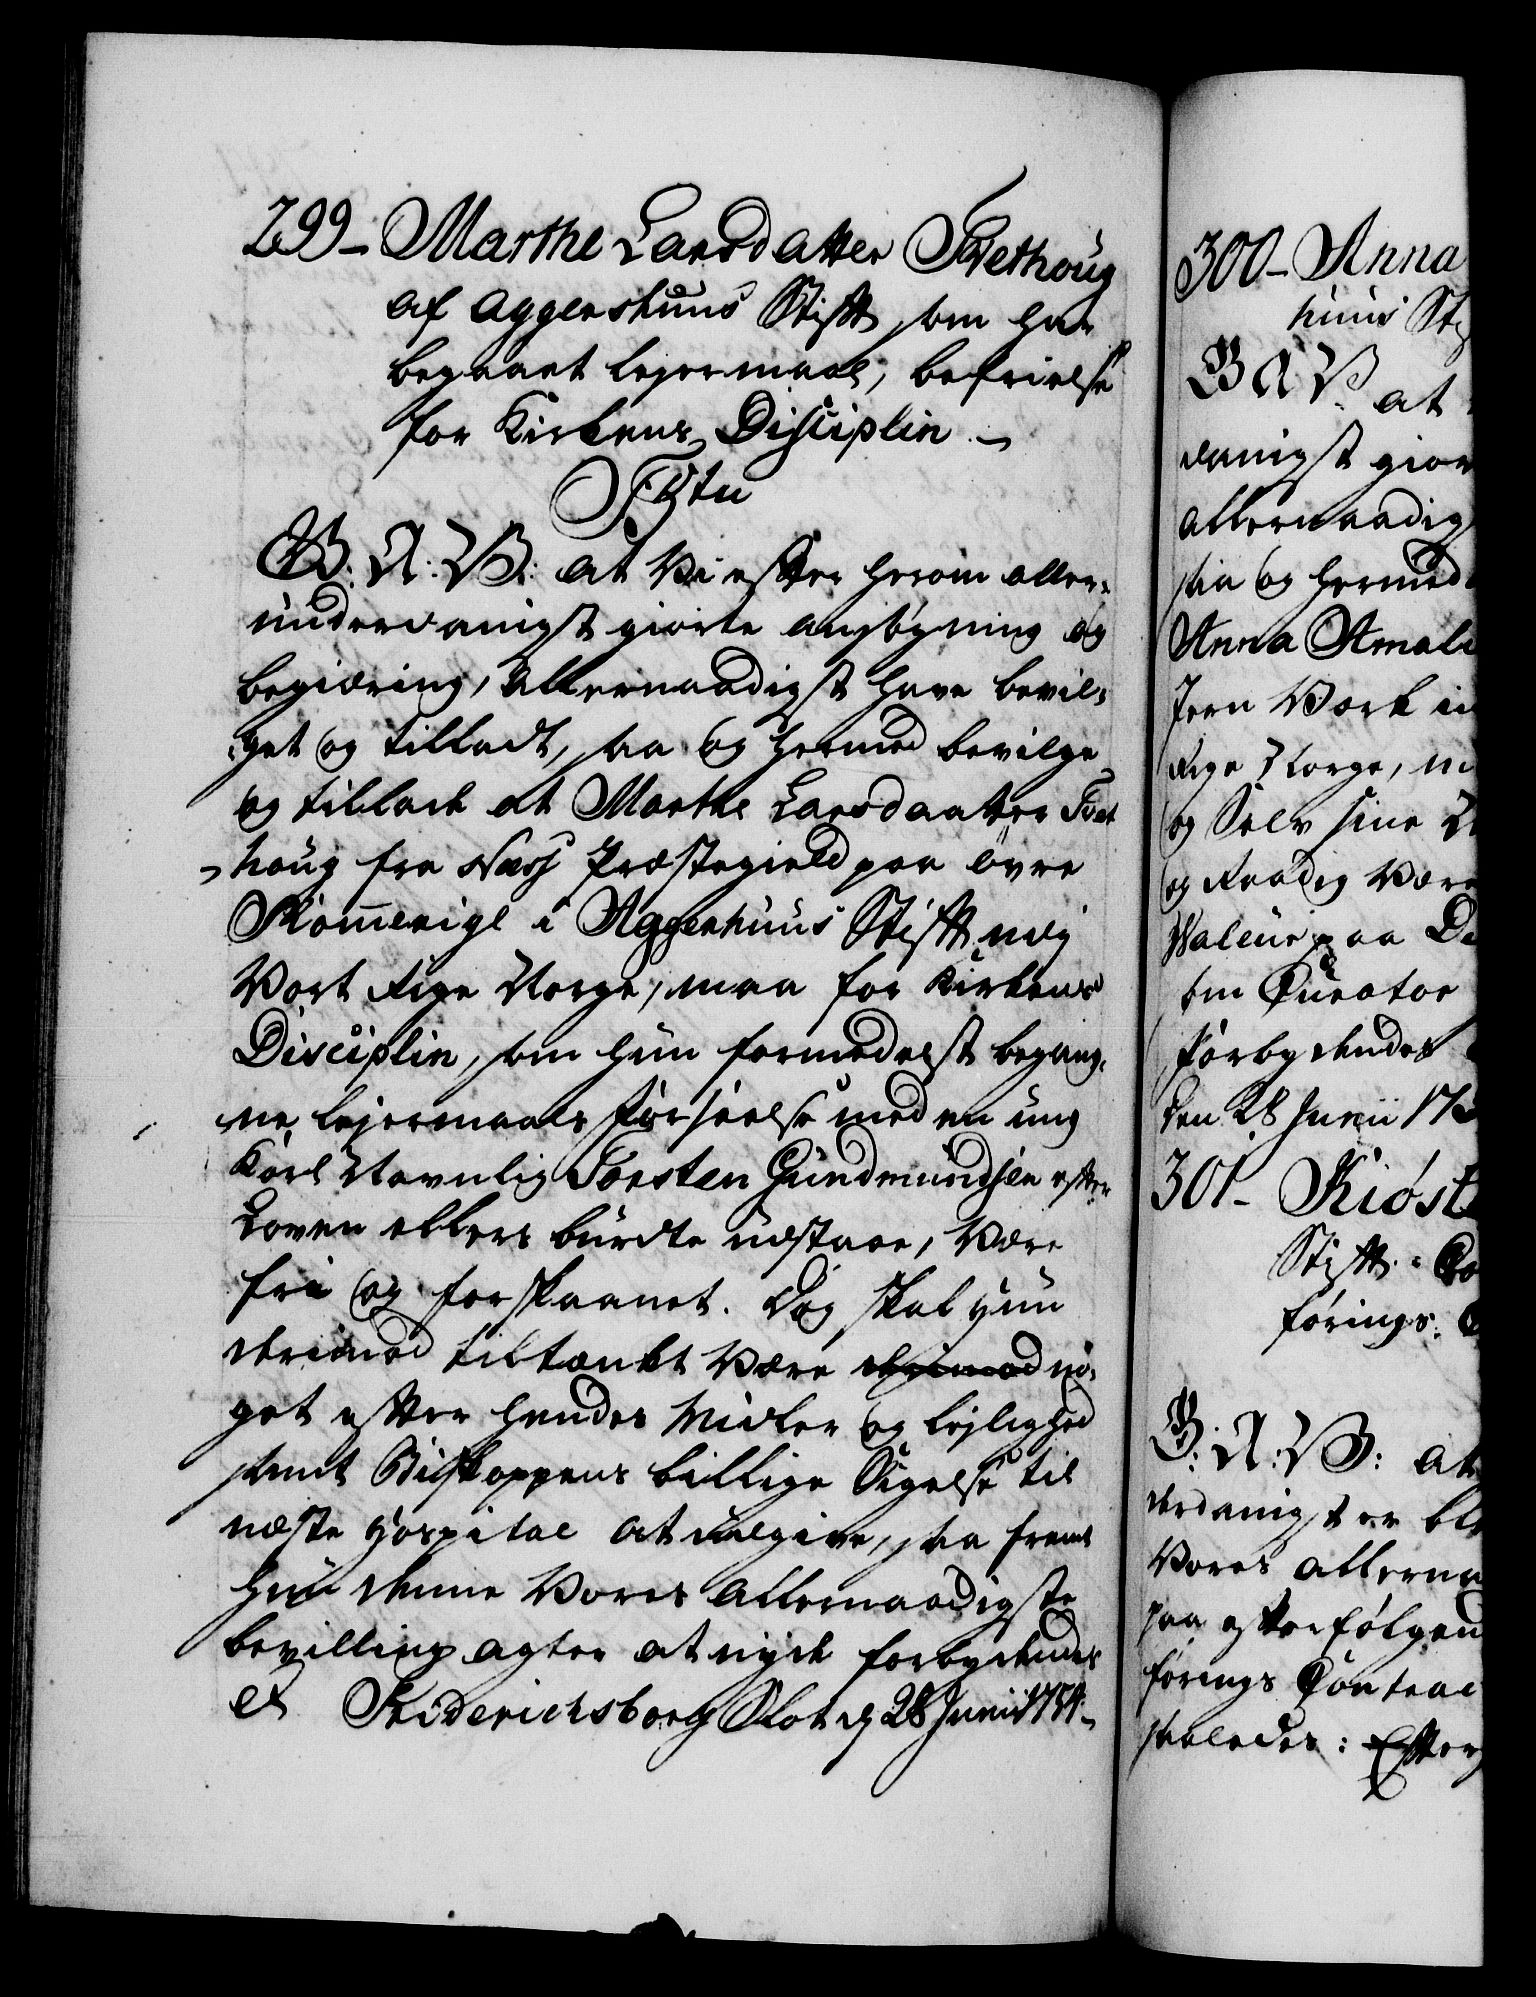 299_ Marthe Larsdatter Tvethoug
af Aggershuus Stift som har
begaaet Lejermaal, befrielse
for Kirkens Disciplin._
G: A: V: at Vi efter herom aller=
underdanigst giorte ansøgning og
begiæring, Allernaadigst have bevil=
:get og tilladt, saa og hermed bevilge
og tillade at Marthe Larsdaatter Tvet
houg fra Næss Præstegield paa øvre
Rommerige i Aggerhuus Stift udj
Vort Rige Norge, maa for Kirkens
Disciplin, som hun formedelst begang=
ne Lejermaals forseelse med en ung
Karl Navnlig Torsten Gundmundsen efter
Loven ellers burdte udstaae, Være
fri og forskaanet. Dog skal hun
derimod tiltænkt Være derimod no=
get efter hendes Midler og lejlighed
samt Biskoppens billige Sigelse til
næste Hospital at udgive, saa fremt
hun denne Vores Allernaadigste
bevilling agter at nyde forbydendes
et Friderichsborg Slot d 28 Junii
300_ Anna
huus Sti
G A V at
danigst gior
allernaadig
saa og hermed
Anna Amali
Jern Værk i
Rige Norge, m
og Selv sine
og Raadig Være
Valeur paa De
som Curator
Forbydendes
Den 28 Junii 17
301_ Kiøst
Stift. Co
førings:
G: A: V: at
derdanigst er ble
Vores allerna
paa efterfølgend
førings Contrac
saaledes: Efter